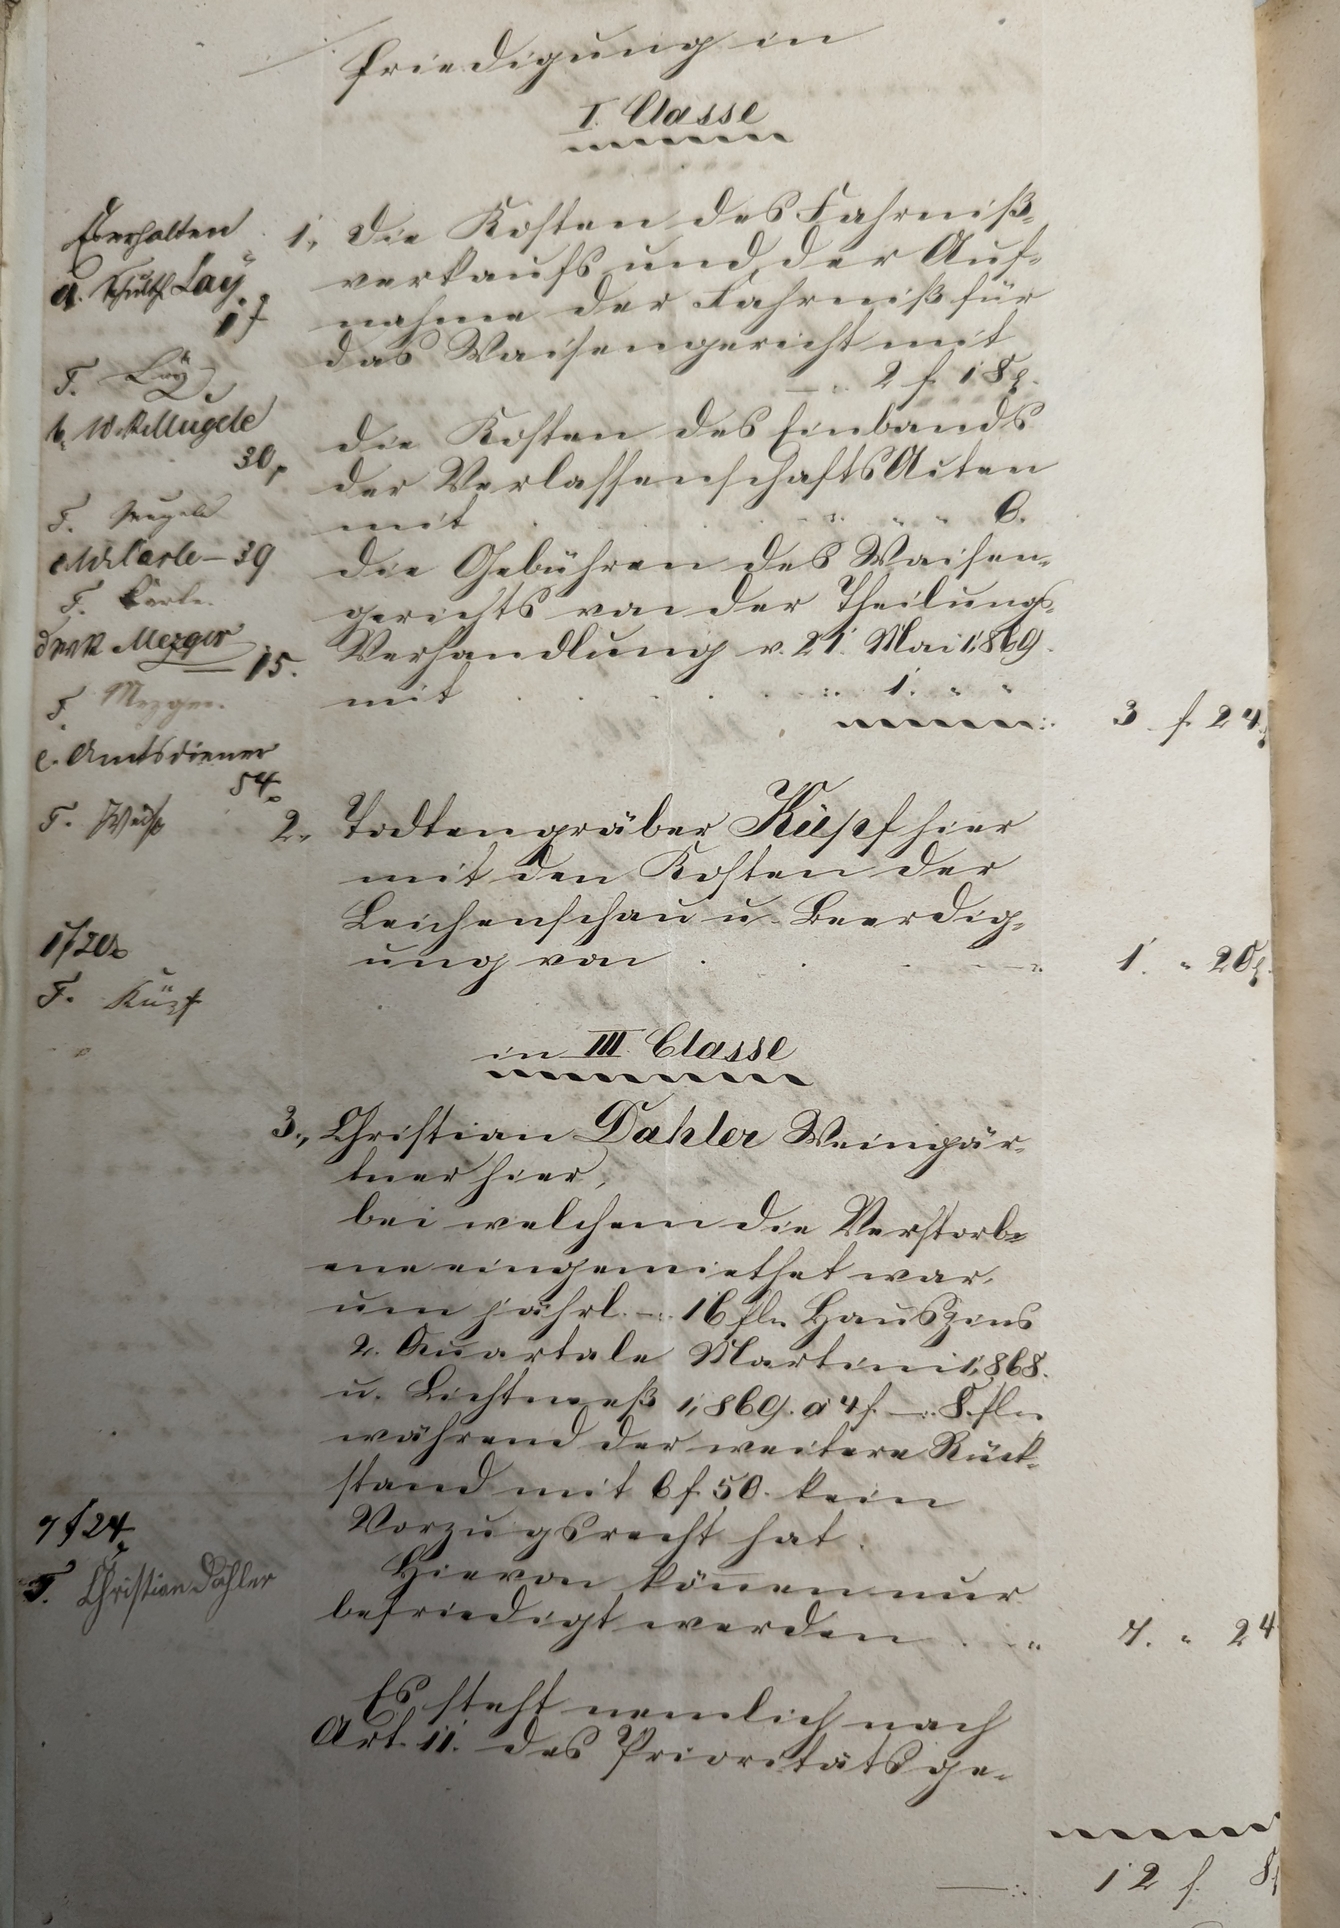 friedigung in
I. Classe
Es erhalten
a. Schulth. Lay
1 f
T. Lay
b. W.R. Mugele
30 x
T. Mugele
c. W.R. Carle – 39
T. Karle.
d. W.R. Mezger
15.
T. Mezger.
e. Amtsdiener
54 x
T. Weiß
1., die Kosten des Fahrniß-
verkaufs und der Auf-
nahme der Fahrniß für
das Waisengericht mit
2 f. 18 x.
die Kosten des Einbands
der Verlassenschafts Acten
mit . . . " " " 6.
die Gebühren des Waisen-
gerichts von der Theilungs-
Verhandlung v. 21. Mai 1869.
mit . . . 1. " "
3 f. 24 x
2., Todtengräber Küpf hier
mit den Kosten der
Leichenschau u. Beerdig-
ung von . . . 1. " 20 x.
1 f 20 x
T. Küpf
in III. Classe
3., Christian Dahler Weingär-
tner hier,
bei welchem die Verstorb-
ene eingemiethet war,
um jährl. –. 16 fl. Hauszins
2. Quartale Martini 1868.
u. Lichtmeß 1869. a 4 f. –. 8. fl.
während der weitere Rück-
stand mit 6 f. 50. kein
Vorzugsrecht hat.
Hievon können nur
befriedigt werden . . " 7. " 24
7 f 24 x
T. Christian Dahler
Es steht nemlich nach
Art. 11. des Prioritätsge-
12 f. 8 x